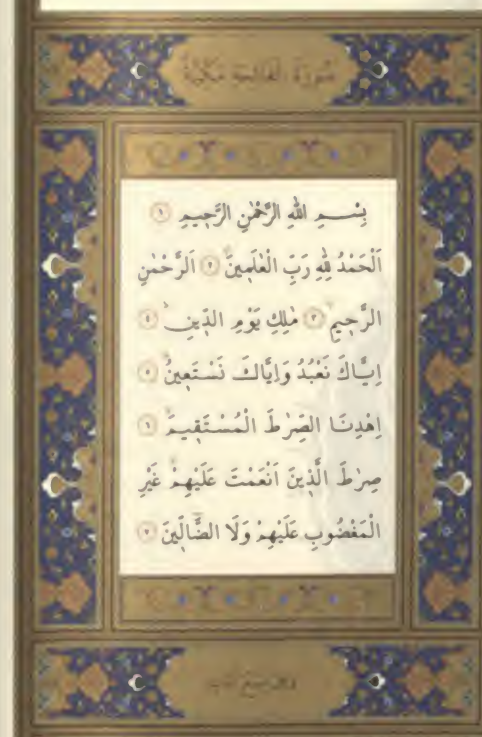 سُورَةُ الْفَاتِحَةِ مَكِّيَّةٌ
بِسْــمِ اللّٰهِ الرَّحْمٰنِ الرَّحٖيمِ ١
اَلْحَمْدُ لِلّٰهِ رَبِّ الْعٰلَمٖينَۙ ٢ اَلرَّحْمٰنِ
الرَّحٖيمِۙ ٣ مٰلِكِ يَوْمِ الدّٖينِۜ ٤
اِيَّاكَ نَعْبُدُ وَاِيَّاكَ نَسْتَعٖينُۜ ٥
اِهْدِنَا الصِّرٰطَ الْمُسْتَقٖيمَۙ ٦
صِرٰطَ الَّذٖينَ اَنْعَمْتَ عَلَيْهِمْۙ غَيْرِ
الْمَغْضُوبِ عَلَيْهِمْ وَلَا الضَّٓالّٖينَ ٧